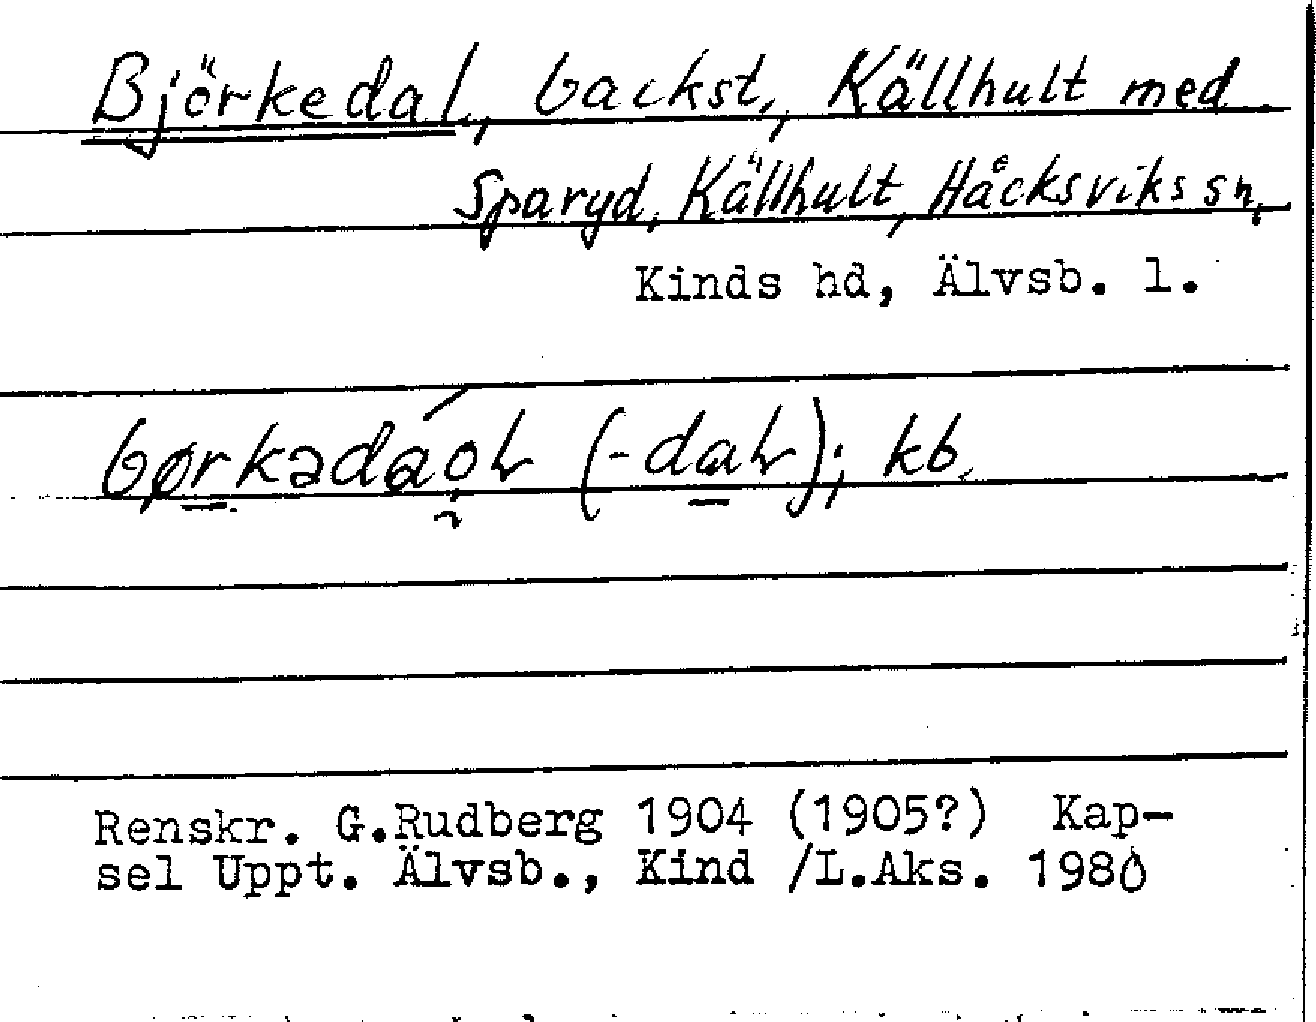 Björkedal, backst., Källhult med
Sparyd, Källhult, Håcksviks sn,
Kinds hd, Älvsb. l.
(-daɫ); kb.
Renskr. G.Rudberg 1904 (1905?) Kap-
sel Uppt. Älvsb., Kind /L.Aks. 1980